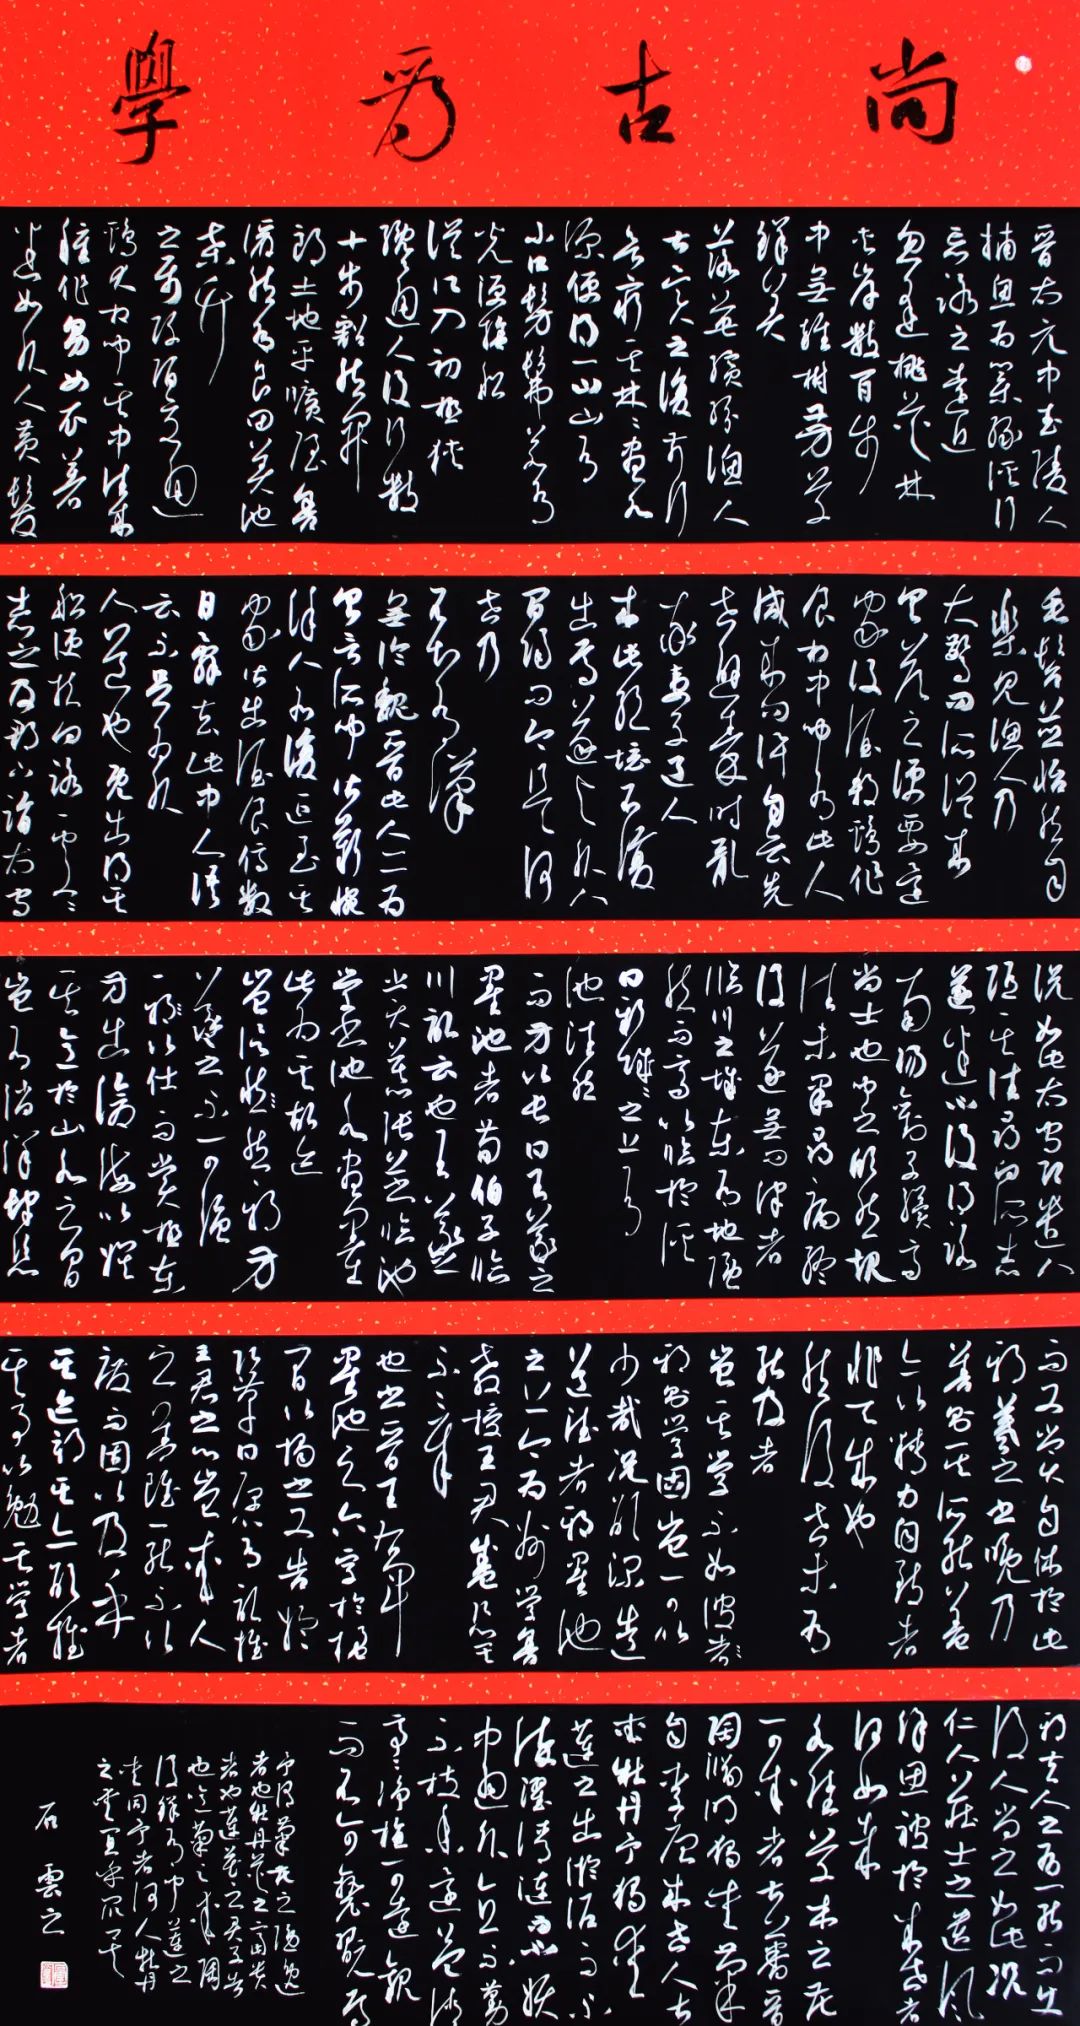 尚古為學
晉太元中武陵人
捕魚為業緣溪行
忘路之遠近
忽逢桃花林
夾岸數百步
中無雜樹芳草
鮮美
落英繽紛漁人
甚異之復前行
欲窮其林林盡水
源便得一山山有
小口髣髴若有
光便捨船
從口入初極狹
纔通人復行數
十步豁然開
朗土地平曠屋舍
儼然有良田美池
桑竹
之屬阡陌交通
雞犬相聞其中往來
種作男女衣著
悉如外人黃髮
垂髫並怡然自
樂見漁人乃
大驚問所從來
具答之便要還
家設酒殺雞作
食村中聞有此人
咸來問訊自云先
世避秦時亂
率妻子邑人
來此絕境不復
出焉遂與外人
間隔問今是何
世乃
不知有漢
無論魏晉此人一一為
具言所聞皆歎惋
餘人各復延至其
家皆出酒食停數
日辭去此中人語
云不足為外
人道也既出得其
船便扶向路處處
誌之及郡下詣太守
說如此太守即遣人
隨其往尋向所誌
遂迷不復得路
南陽劉子驥高
尚士也聞之欣然規
往未果尋病終
後遂無問津者
臨川之城東有地隱
然而高以臨於溪
曰新城新城之上有
池洼然
而方以長曰王羲之
墨池者荀伯子臨
川記云也王羲之
嘗慕張芝臨池
學書池水盡黑
此為其故迹
豈信然邪方
羲之之不可強
以仕而嘗極東
方出滄海以娛
其意於山水之間
豈有徜徉肆恣
而又嘗自休於此
邪羲之之書晚乃
善則其所能蓋
亦以精力自致者
非天成也
然後世未有
能及者
豈其學不如彼
邪則學固豈可以
少哉況欲深造
道德者邪墨池
之上今為州學舍
教授王君盛恐其
不章
也書晉王右軍
墨池之六字於楹
間以揭之又告於
鞏曰願有記推
王君之心豈愛人
之善雖一能不以
廢而因以及乎
其迹邪其亦欲推
其事以勉其學者
邪夫人之有一能而使
後人尚之如此況
仁人莊士之遺風
餘思被於來世者
何如哉
水陸草木之花
可愛者甚蕃晉
陶淵明獨愛菊
自李唐來世人甚
愛牡丹予獨愛
蓮之出淤泥而不
染濯清漣而不妖
中通外直不蔓
不枝香遠益清
亭亭淨植可遠觀
而不可褻翫焉
予謂菊花之隱逸
者也牡丹花之富貴
者也蓮花之君子者
也噫菊之愛陶
後鮮有聞蓮之
愛同予者何人牡丹
之愛宜乎眾矣
石雲之